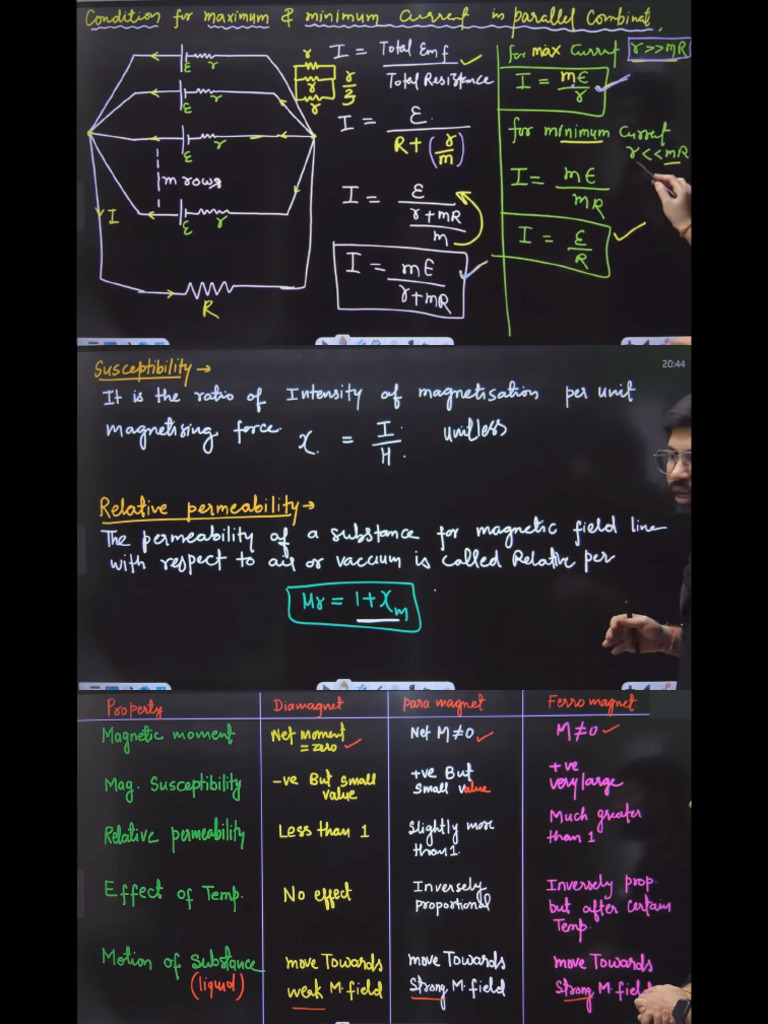 Condition for maximum & minimum Current in parallel Combinat.
ε r
ε r
ε r
m rows
ε r
I
R
r
r
r
r/3
I = Total Emf / Total Resistance
I = ε / R + (r/m)
I = ε / (r+mR / m)
I = mε / r+mR
for max Current r>>mR
I = mε / r
for minimum Current
r<<mR
I = mε / mR
I = ε / R
20:44
Susceptibility →
It is the ratio of Intensity of magnetisation per unit
magnetising force. χ = I / H unitless
Relative permeability →
The permeability of a substance for magnetic field line
with respect to air or vaccium is called Relative per
μr = 1+χm
Property Diamagnet para magnet Ferro magnet.
Magnetic moment Net moment = zero Net M≠0 M≠0
Mag. Susceptibility -ve But small value +ve But small value +ve very large
Relative permeability Less than 1 Slightly more than 1. Much greater than 1
Effect of Temp. No effect Inversely proportional Inversely prop. but after certain Temp.
Motion of Substance (liquid) move Towards weak M. field move Towards Strong M. field move Towards Strong M. field